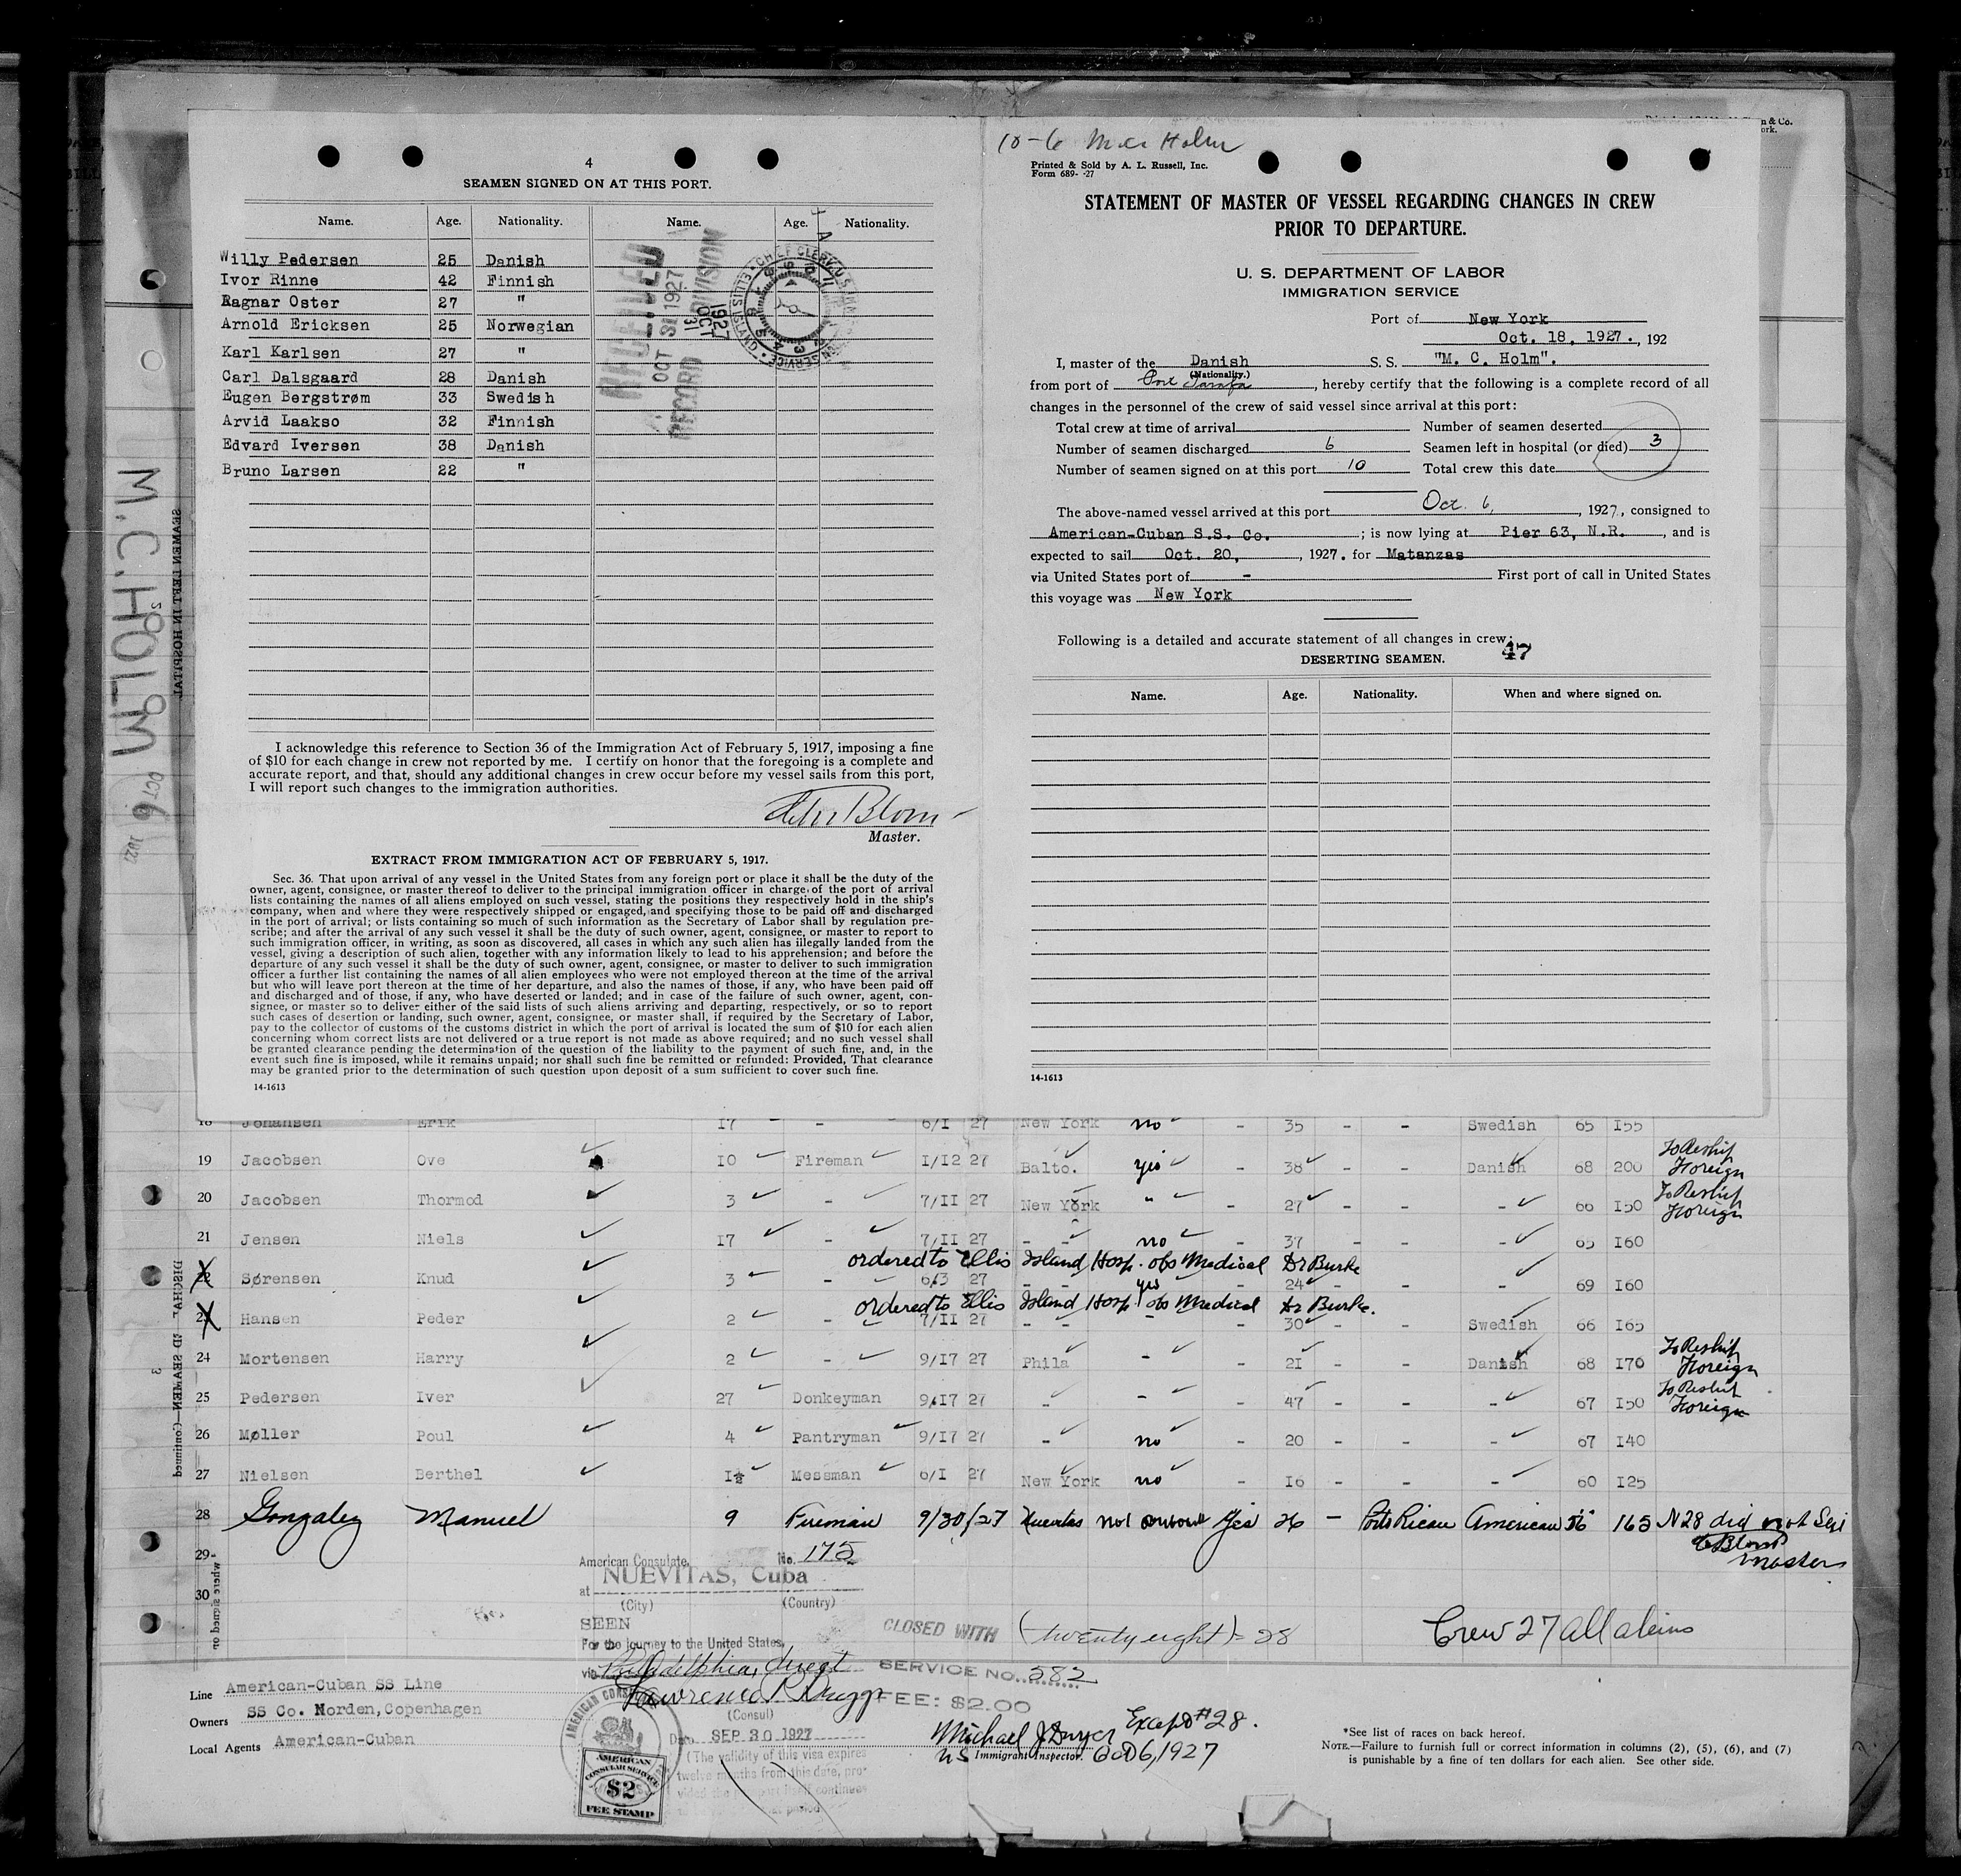 4
SEAMEN SIGNED ON AT THIS PORT.
Name. Age. Nationality. Name. Age. Nationality.
Willy Pedersen 25 Danish
Ivor Rinne 42 Finnish
Ragnar Oster 27 "
Arnold Ericksen 25 Norwegian
Karl Karlsen 27 "
Carl Dalsgaard 28 Danish
Eugen Bergstrøm 33 Swedish
Arvid Laakso 32 Finnish
Edvard Iversen 38 Danish
Bruno Larsen 22 "
OCT 31 1927
RECORD DIVISION
1927
OCT
31
ELLIS ISLAND
I acknowledge this reference to Section 36 of the Immigration Act of February 5, 1917, imposing a fine
of $10 for each change in crew not reported by me. I certify on honor that the foregoing is a complete and
accurate report, and that, should any additional changes in crew occur before my vessel sails from this port,
I will report such changes to the immigration authorities.
Blom
Master.
EXTRACT FROM IMMIGRATION ACT OF FEBRUARY 5, 1917.
Sec. 36. That upon arrival of any vessel in the United States from any foreign port or place it shall be the duty of the
owner, agent, consignee, or master thereof to deliver to the principal immigration officer in charge of the port of arrival
lists containing the names of all aliens employed on such vessel, stating the positions they respectively hold in the ship's
company, when and where they were respectively shipped or engaged, and specifying those to be paid off and discharged
in the port of arrival; or lists containing so much of such information as the Secretary of Labor shall by regulation pre-
scribe; and after the arrival of any such vessel it shall be the duty of such owner, agent, consignee, or master to report to
such immigration officer, in writing, as soon as discovered, all cases in which any such alien has illegally landed from the
vessel, giving a description of such alien, together with any information likely to lead to his apprehension; and before the
departure of any such vessel it shall be the duty of such owner, agent, consignee, or master to deliver to such immigration
officer a further list containing the names of all alien employees who were not employed thereon at the time of the arrival
but who will leave port thereon at the time of her departure, and also the names of those, if any, who have been paid off
and discharged and of those, if any, who have deserted or landed; and in case of the failure of such owner, agent, con-
signee, or master so to deliver either of the said lists of such aliens arriving and departing, respectively, or so to report
such cases of desertion or landing, such owner, agent, consignee, or master shall, if required by the Secretary of Labor,
pay to the collector of customs of the customs district in which the port of arrival is located the sum of $10 for each alien
concerning whom correct lists are not delivered or a true report is not made as above required; and no such vessel shall
be granted clearance pending the determination of the question of the liability to the payment of such fine, and, in the
event such fine is imposed, while it remains unpaid; nor shall such fine be remitted or refunded: Provided, That clearance
may be granted prior to the determination of such question upon deposit of a sum sufficient to cover such fine.
14-1613
10-6 M.C. Holm
Printed & Sold by A. L. Russell, Inc.
Form 689- -27
STATEMENT OF MASTER OF VESSEL REGARDING CHANGES IN CREW
PRIOR TO DEPARTURE.
U. S. DEPARTMENT OF LABOR
IMMIGRATION SERVICE
Port of New York
Oct. 18, 1927., 192
I, master of the Danish S. S. "M. C. Holm".
(Nationality.)
from port of Port Tarafa, hereby certify that the following is a complete record of all
changes in the personnel of the crew of said vessel since arrival at this port:
Total crew at time of arrival Number of seamen deserted
Number of seamen discharged 6 Seamen left in hospital (or died) 3
Number of seamen signed on at this port 10 Total crew this date
The above-named vessel arrived at this port Oct. 6, 1927, consigned to
American-Cuban S.S. Co. ; is now lying at Pier 63, N.R. , and is
expected to sail Oct. 20, , 1927. for Matanzas
via United States port of - First port of call in United States
this voyage was New York
Following is a detailed and accurate statement of all changes in crew:
47
DESERTING SEAMEN.
Name. Age. Nationality. When and where signed on.
14-1613
M.C. HOLM
OCT 6 1927
SEAMEN LEFT IN HOSPITAL
18 Johansen Erik 17 - 6/I 27 New York no - 35 - - Swedish 65 I55
19 Jacobsen Ove 10 Fireman I/I2 27 Balto. yes - 38 - - Danish 68 200 To Reship Foreign
20 Jacobsen Thormod 3 - 7/II 27 New York " - 27 - - - 66 I50 To Reship Foreign
21 Jensen Niels I7 - 7/II 27 - no - 37 - - - 65 I60
ordered to Ellis Island Hosp. obs Medical Dr Burke
22 Sørensen Knud 3 - 6/3 27 - yes - 24 - - - 69 I60
ordered to Ellis Island Hosp obs Medical Dr Burke.
23 Hansen Peder 2 - 7/II 27 - - - 30 - - Swedish 66 I65
24 Mortensen Harry 2 - 9/I7 27 Phila - - 2I - - Danish 68 I70 To Reship Foreign
25 Pedersen Iver 27 Donkeyman 9/I7 27 - - - 47 - - - 67 I50 To Reship Foreign
26 Møller Poul 4 Pantryman 9/I7 27 - no - 20 - - - 67 I40
27 Nielsen Berthel Messman 6/I 27 New York no - I6 - - - 60 I25
28 Gonzalez Manuel 9 Fireman 9/30/27 Nuevitas not Yes 26 - Porto Rican American 165 N 28 did not Sail
Blom
master
29
30
American Consulate, No. 175
at NUEVITAS, Cuba
(City) (Country)
SEEN
For the journey to the United States,
via Philadelphia, direct
(Consul)
Date SEP 30 1927
(The validity of this visa expires
twelve months from this date, pro-
AMERICAN
CONSULAR SERVICE
$2
FEE STAMP
CLOSED WITH (twenty eight) = 28
SERVICE NO. 582
FEE: $2.00
Crew 27 all aleins
Line American-Cuban SS Line
Owners SS Co. Norden, Copenhagen
Local Agents American-Cuban
Michael J Dwyer Except #28.
US Immigrant Inspector. Oct 6, 1927
*See list of races on back hereof.
NOTE.—Failure to furnish full or correct information in columns (2), (5), (6), and (7)
is punishable by a fine of ten dollars for each alien. See other side.